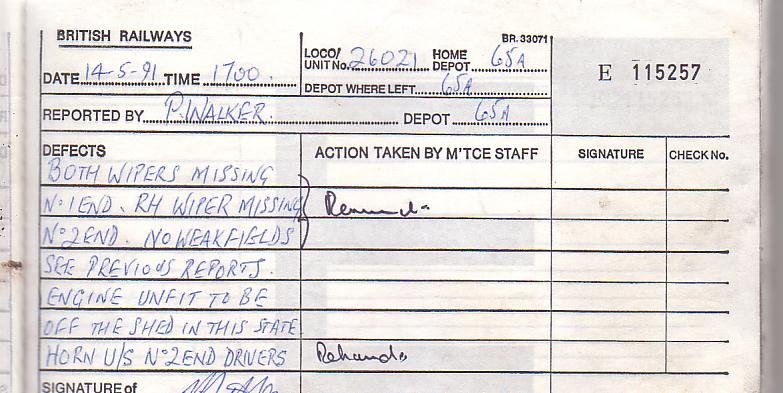 BRITISH RAILWAYS
BR. 33071
LOCO/ UNIT No. 26021 HOME DEPOT 65A
E 115257
DATE 14-5-91 TIME 1700.
DEPOT WHERE LEFT 65A
REPORTED BY P. WALKER. DEPOT 65A
DEFECTS ACTION TAKEN BY M'TCE STAFF SIGNATURE CHECK No.
BOTH WIPERS MISSING
Nº1END. RH WIPER MISSING
Nº2END. NO WEAKFIELDS
SEE PREVIOUS REPORTS.
ENGINE UNFIT TO BE
OFF THE SHED IN THIS STATE
HORN U/S Nº2END DRIVERS
SIGNATURE of